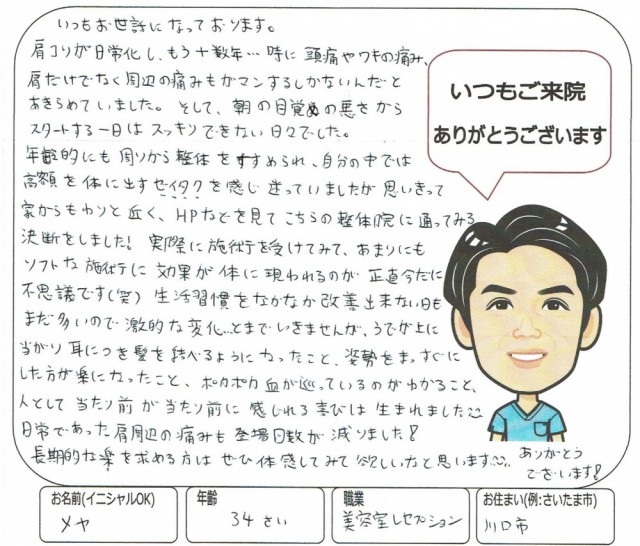 いつもお世話になっております。
肩コリが日常化し、もう十数年… 時に頭痛やワキの痛み、
肩だけでなく周辺の痛みもガマンするしかないんだと
あきらめていました。そして、朝の目覚めの悪さから
スタートする一日はスッキリできない日々でした。
年齢的にも周りから整体をすすめられ、自分の中では
高額を体に出すゼイタクを感じ迷っていましたが思いきって
家からもわりと近く、HPなどを見てこちらの整体院に通ってみる
決断をしました! 実際に施術を受けてみて、あまりにも
ソフトな施術に効果が体に現われるのが正直今だに
不思議です(笑) 生活習慣をなかなか改善出来ない日も
まだ多いので激的な変化…とまでいきませんが、うでが上に
当がり耳につき髪を結べるようになったこと、姿勢をまっすぐに
した方が楽になったこと、ポカポカ血が巡っているのがわかること、
人として当たり前が当たり前に感じれる喜びは生まれました
日常であった肩周辺の痛みも登場日数が減りました!
長期的な楽を求める方はぜひ体感してみて欲しいなと思います
ありがとう
ございます!
いつもご来院
ありがとうございます
お名前(イニシャルOK)
メヤ
年齢
34さい
職業
美容室レセプション
お住まい(例:さいたま市)
川口市